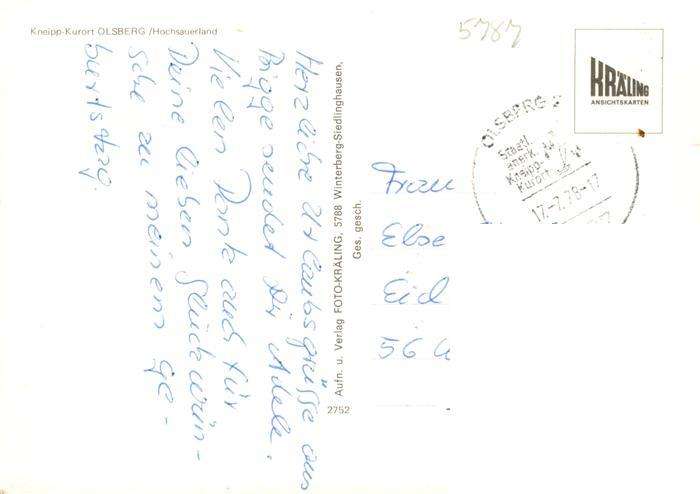 Kneipp-Kurort OLSBERG /Hochsauerland
5787
KRÄLING
ANSICHTSKARTEN
OLSBERG
Staatl.
anerk.
Kneipp-
Kurort
17.-7.78-17
Herzliche Urlaubsgrüsse aus
Bigge sendet Dir Adele.
Vielen Dank auch für
Deine lieben Glückwün-
sche zu meinem Ge-
burtstag.
Aufn. u. Verlag FOTO-KRÄLING, 5788 Winterberg-Siedlinghausen,
Ges. gesch.
2752
Frau
Else
56